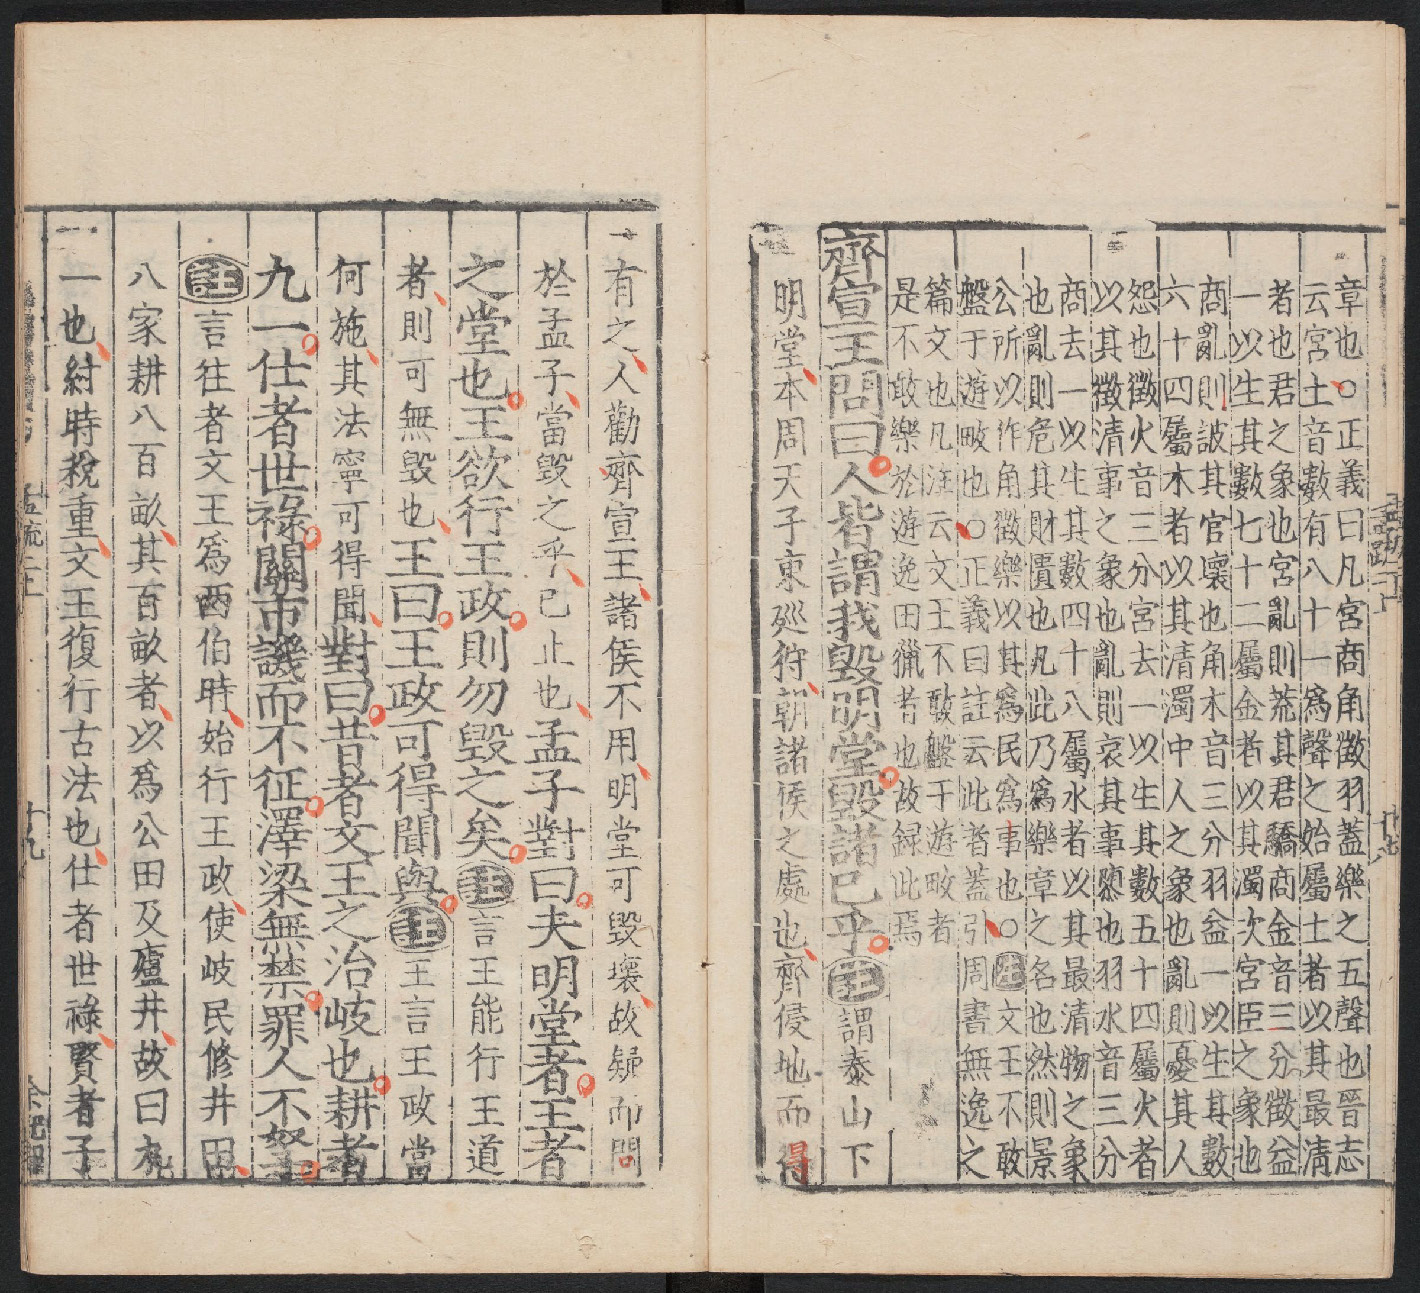 章也○正義曰凡宮商角徵羽蓋樂之五聲也晉志
云宮土音數有八十一爲聲之始屬土者以其最清
者也君之象也宮亂則荒其君驕商金音三分徵益
一以生其數七十二屬金者以其濁次宮臣之象也
商亂則詖其官壞也角木音三分羽益一以生其數
六十四屬木者以其清濁中人之象也亂則憂其人
怨也徵火音三分宮去一以生其數五十四屬火者
以其徵清事之象也亂則哀其事隳也羽水音三分
商去一以生其數四十八屬水者以其最清物之象
也亂則危其財匱也凡此乃爲樂章之名也然則景
公所以作角徵樂以其爲民爲事也○註文王不敢
盤于遊畋也○正義曰註云此者蓋引周書無逸之
篇文也凡注云文王不敢盤于遊畋者
是不敢樂於遊逸田獵者也故録此焉
齊宣王問曰人皆謂我毀明堂毀諸已乎註謂泰山下
明堂本周天子東廵狩朝諸侯之處也齊侵地而得
有之人勸齊宣王諸侯不用明堂可毀壞故疑而問
於孟子當毀之乎已止也孟子對曰夫明堂者王者
之堂也王欲行王政則勿毀之矣註言王能行王道
者則可無毀也王曰王政可得聞與註王言王政當
何施其法寧可得聞對曰昔者文王之治岐也耕者
九一仕者世祿關市譏而不征澤梁無禁罪人不孥
註言往者文王爲西伯時始行王政使岐民修井田
八家耕八百畝其百畝者以爲公田及廬井故曰九
一也紂時稅重文王復行古法也仕者世祿賢者子
孟疏二上
十九